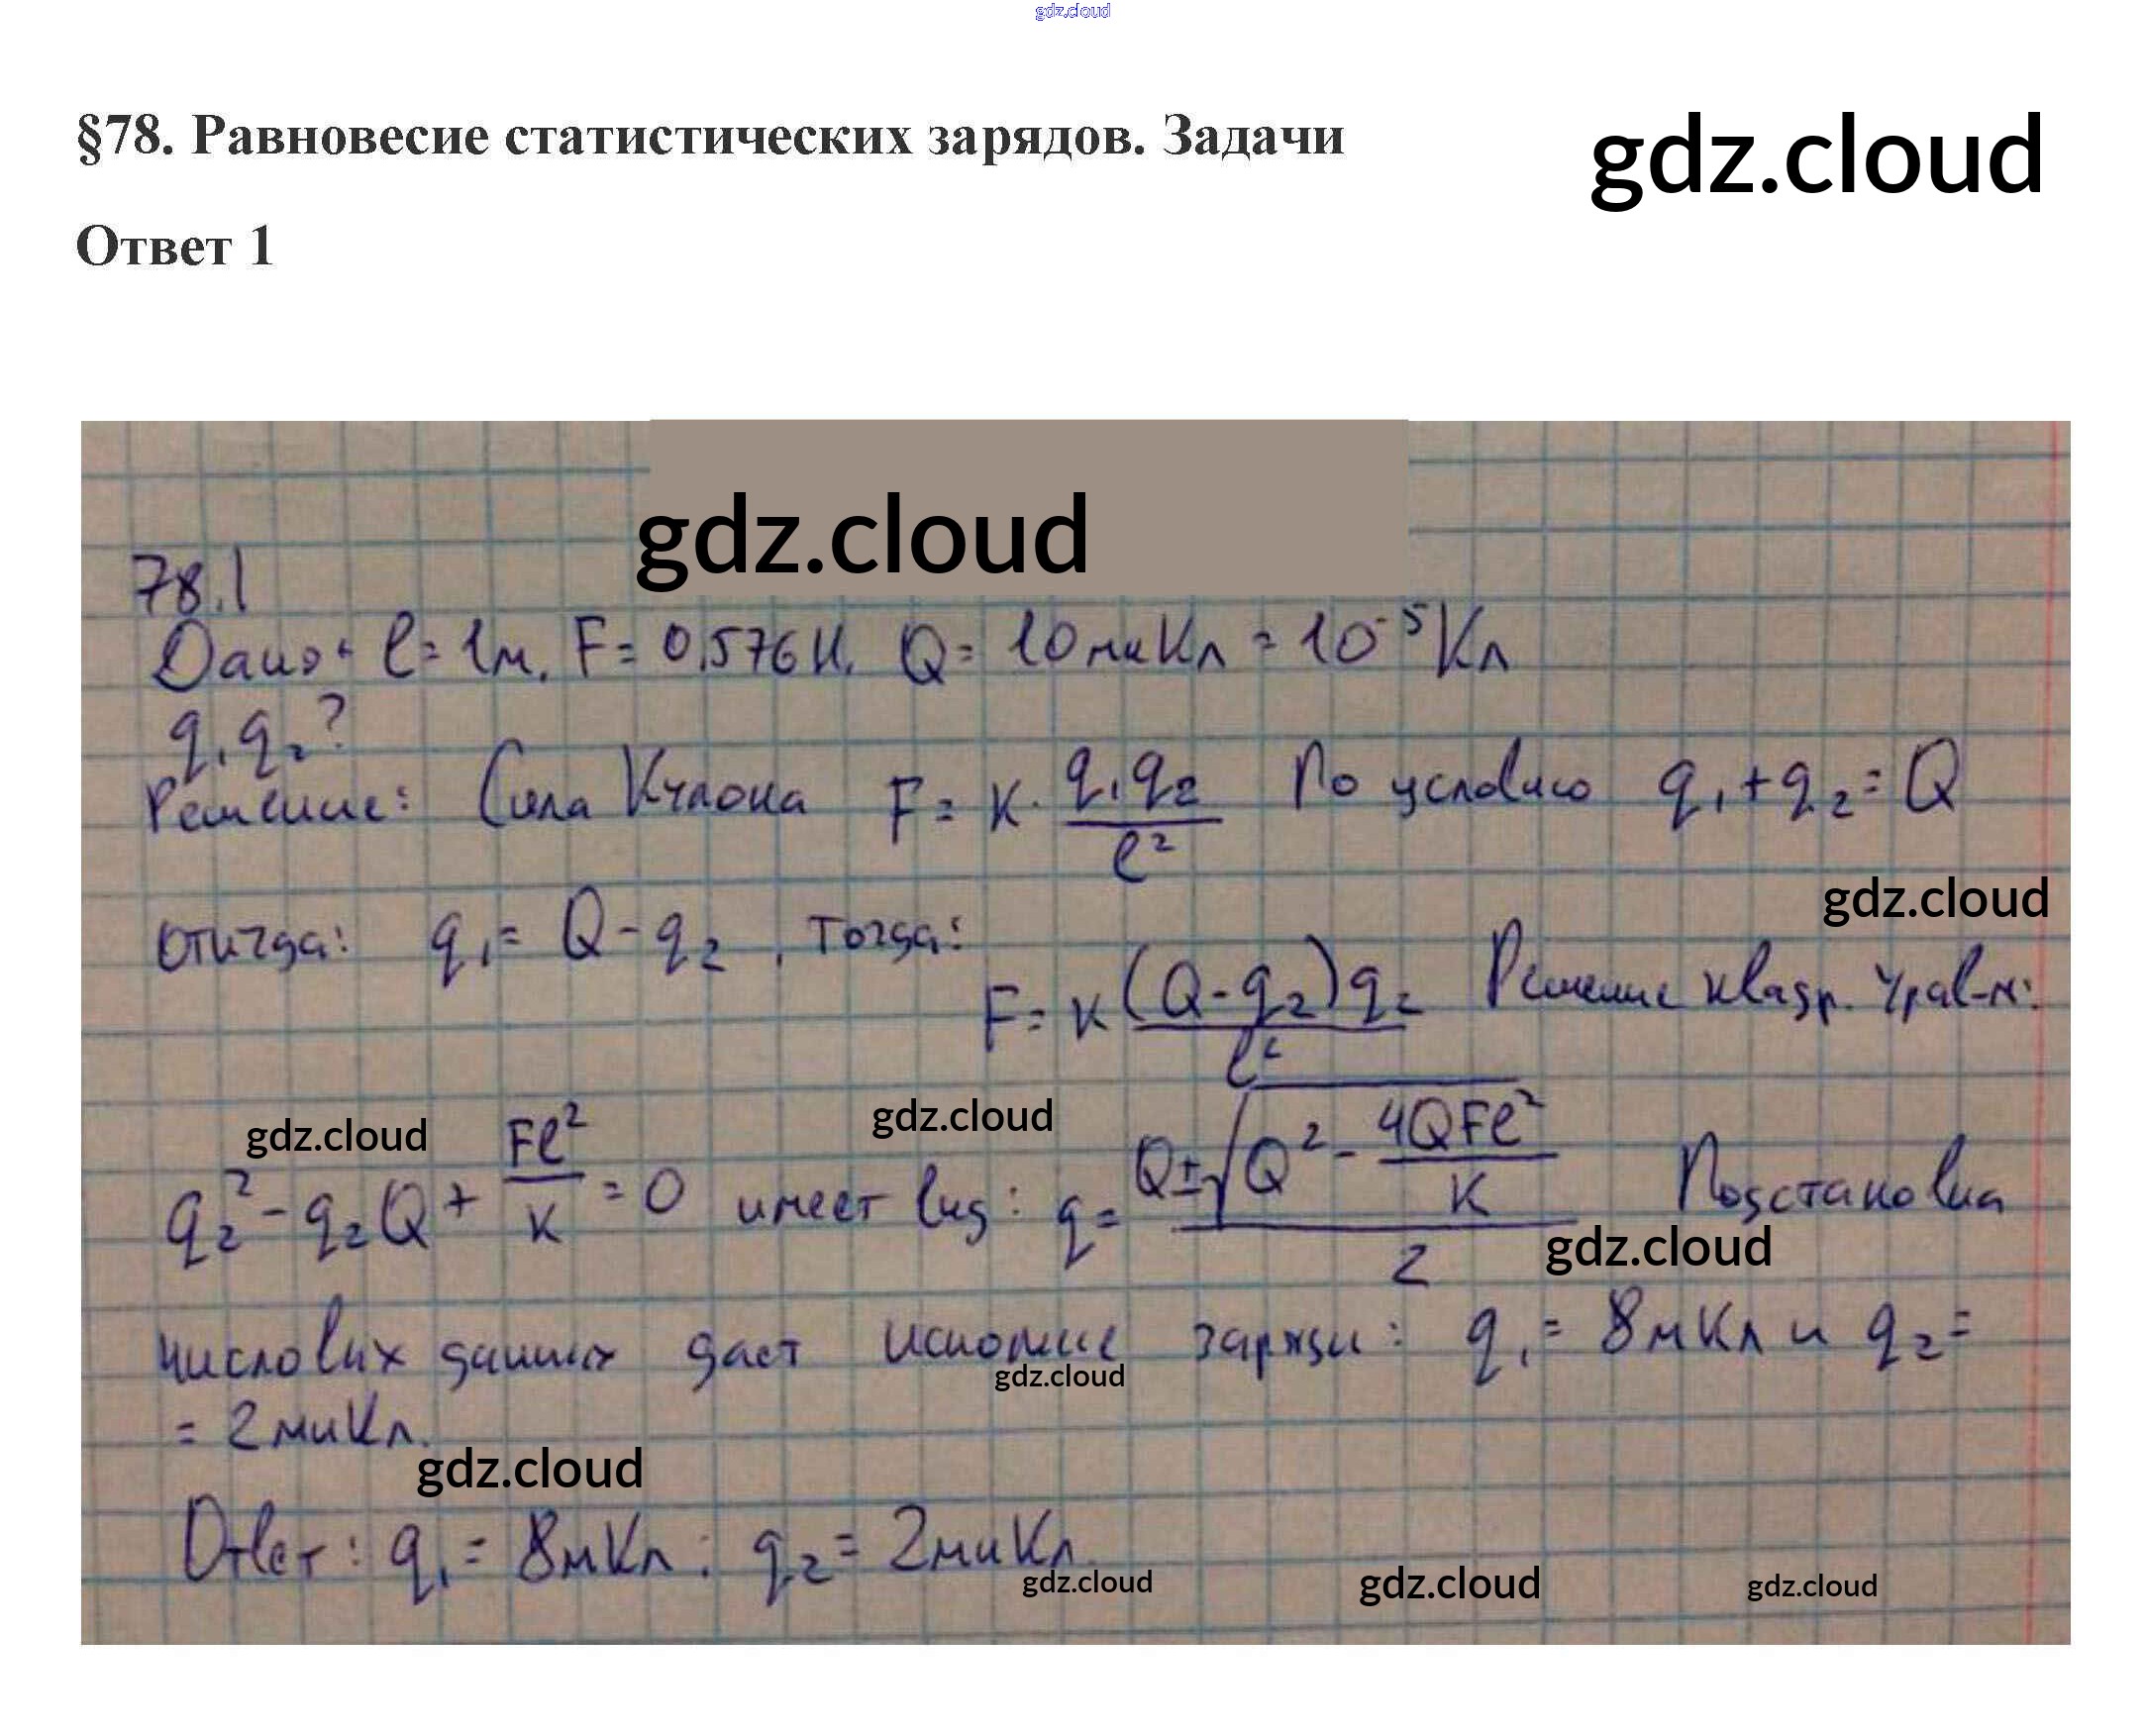 gdz.cloud
§78. Равновесие статистических зарядов. Задачи
gdz.cloud
Ответ 1
gdz.cloud
78.1
Дано: l = 1м, F = 0,576 Н, Q = 10 мкКл = 10⁻⁵ Кл
q₁ q₂ ?
Решение: Сила Кулона F = k · q₁q₂ / l² По условию q₁ + q₂ = Q
gdz.cloud
откуда: q₁ = Q - q₂, тогда:
F = k (Q - q₂) q₂ / l² Решение квадр. урав-я:
gdz.cloud gdz.cloud
q₂² - q₂Q + Fl²/k = 0 имеет вид: q = (Q ± √(Q² - 4QFl²/k)) / 2 Подстановка
gdz.cloud
числовых данных даст искомые заряды: q₁ = 8 мкКл и q₂ =
gdz.cloud
= 2 мкКл.
gdz.cloud
Ответ: q₁ = 8 мкКл; q₂ = 2 мкКл.
gdz.cloud gdz.cloud gdz.cloud